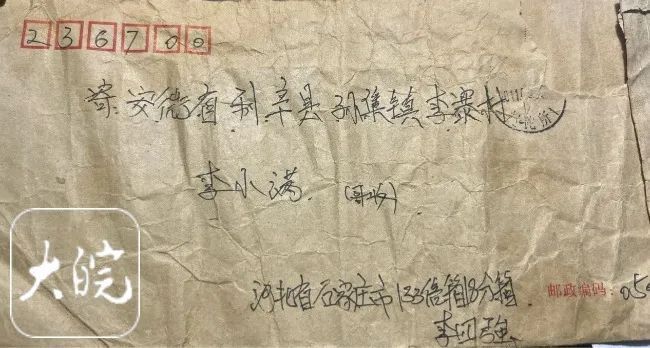 236700
寄安徽省利辛县孙集镇李寨村
李小满 (哥收)
大皖
河北省石家庄市133信箱18分箱
邮政编码: 050
李四强